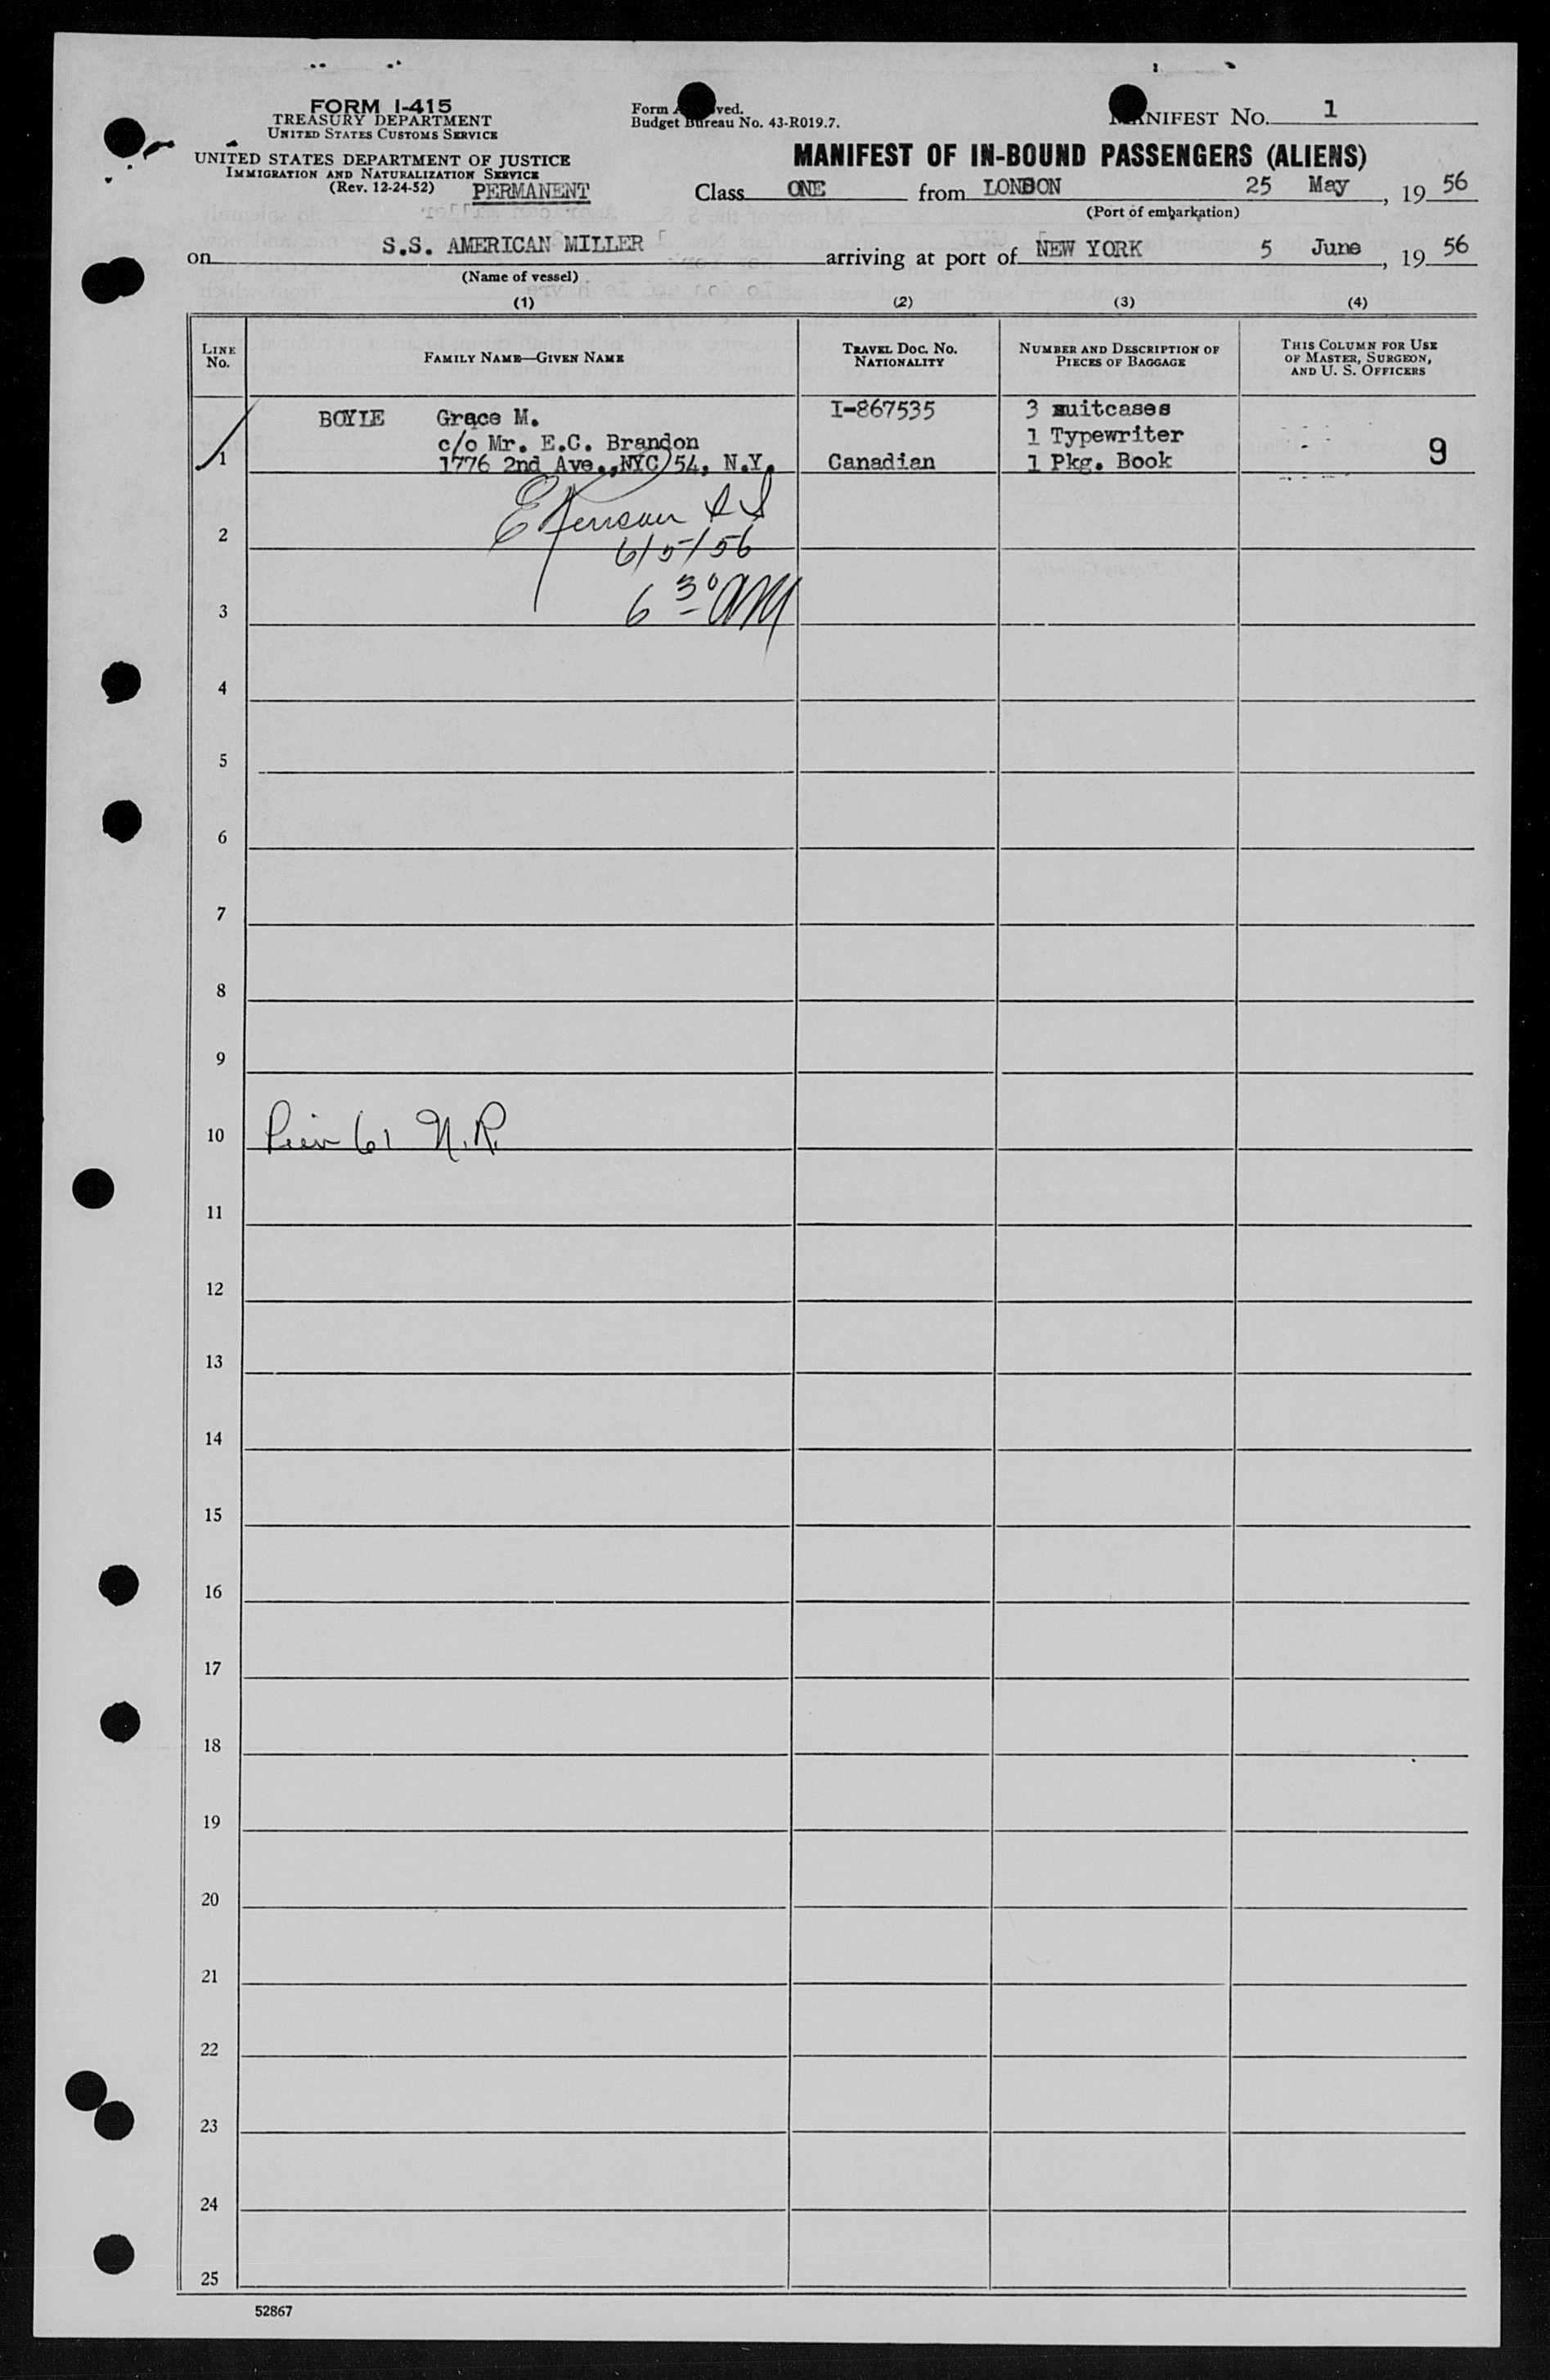 FORM I-415
TREASURY DEPARTMENT
UNITED STATES CUSTOMS SERVICE
UNITED STATES DEPARTMENT OF JUSTICE
IMMIGRATION AND NATURALIZATION SERVICE
(Rev. 12-24-52) PERMANENT
Form ved.
Budget Bureau No. 43-R019.7.
MANIFEST NO. 1
MANIFEST OF IN-BOUND PASSENGERS (ALIENS)
Class ONE from LONDON 25 May, 19 56
(Port of embarkation)
on S.S. AMERICAN MILLER arriving at port of NEW YORK 5 June, 19 56
(Name of vessel)
(1) (2) (3) (4)
LINE No. FAMILY NAME—GIVEN NAME TRAVEL DOC. No. NATIONALITY NUMBER AND DESCRIPTION OF PIECES OF BAGGAGE THIS COLUMN FOR USE OF MASTER, SURGEON, AND U. S. OFFICERS
BOYLE Grace M. I-867535 3 suitcases
c/o Mr. E.C. Brandon 1 Typewriter
1 1776 2nd Ave., NYC 54, N.Y. Canadian 1 Pkg. Book 9
2
6/5/56
3 6 30 AM
4
5
6
7
8
9
10 Pier 61 N.R.
11
12
13
14
15
16
17
18
19
20
21
22
23
24
25
52867